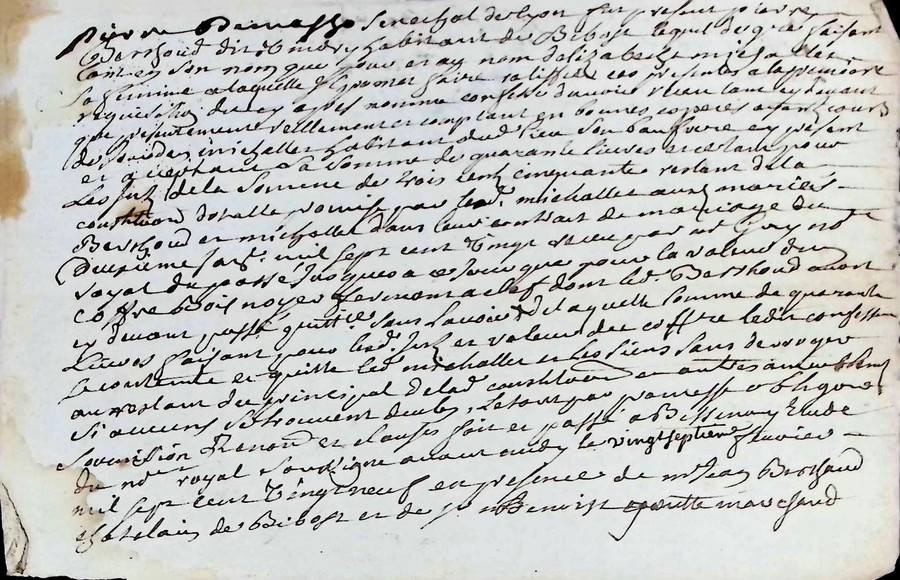 Senechal de lyon fut present pierre
Berthoud dit habitant de Bibost lequel de gré faisant
tant en son nom que pour et au nom delizabeth michallet
sa femme a laquelle il promet faire ratiffier ces presentes a la premiere
requisition de ey apres nommé confesse davoir receu tant cy devant
que presentement reellement et comptant en bonnes especes ayant cours
de michallet habitant dud lieu son beaufrere cy present
et acceptant la somme de quarante livres et ce tant pour
Les de la somme de trois cent cinquante restant de la
constitution dotalle promise par led. michallet aux mariés
Berthoud et michallet dans leur contrat de mariage du
deuxième mil sept cent vingt receu par me not
royal jusques a ce jour que pour la valeur du
coffre Bois noyer fermant a clef dont led. Berthoud avoit
cy devant passé quittce sans lavoir de laquelle somme de quarante
livres faisant pour lesd. et valeur de coffre led. confessant
se contente et quitte led michallet et les siens sans deroger
au restant du principal de lad constitution et autres
si aucuns se trouvent deubs, le tout par promesse oblige
soumission Renon et clauses fait et passé a Bessenay Etude
du nre royal soussigné avant midy le vingt septieme fevrier
mil sept cent vingt neuf en presence de me Jean Berthaud
chatelain de Bibost et de Benoist marchand